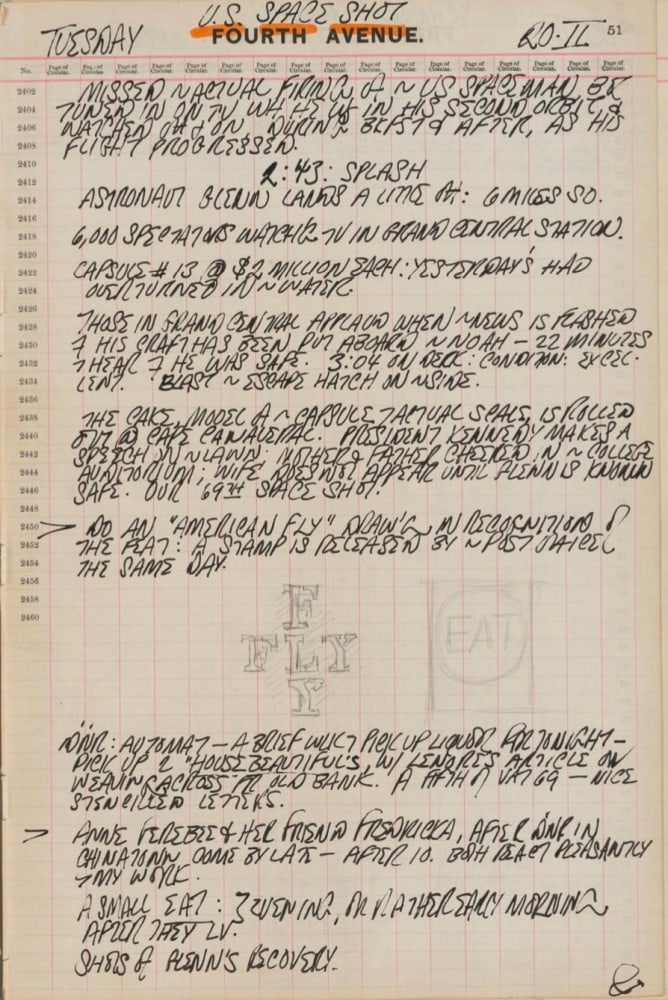 U.S. SPACE SHOT
TUESDAY FOURTH AVENUE. 20·II 51
No. Page of Circular. Page of Circular. Page of Circular. Page of Circular. Page of Circular. Page of Circular. Page of Circular. Page of Circular. Page of Circular. Page of Circular. Page of Circular. Page of Circular.
2402 MISSED ~ ACTUAL FIRING OF ~ US SPACEMAN, BUT
2404 TUNED IN ON TV WH HE IN HIS SECOND ORBIT, &
2406 WATCHED OFF & ON, DURING BKFST & AFTER, AS HIS
2408 FLIGHT PROGRESSED.
2410 2:43: SPLASH
2412
2414 ASTRONAUT GLENN LANDS A LITTLE OFF: 6 MILES SO.
2416
2418 6,000 SPECTATORS WATCH'G TV IN GRAND CENTRAL STATION.
2420
2422 CAPSULE # 13 @ $2 MILLION EACH: YESTERDAY'S HAD
2424 OVERTURNED IN ~ WATER.
2426
2428 THOSE IN GRAND CENTRAL APPLAUD WHEN ~ NEWS IS FLASHED
2430 HIS CRAFT HAS BEEN PUT ABOARD ~ NOAH — 22 MINUTES
2432 HEAR HE WAS SAFE. 3:04 ON DECK: CONDITION: EXCEL-
2434 LENT. BLAST ~ ESCAPE HATCH ON ~ SIDE.
2436
2438 THE CAKE, MODEL OF ~ CAPSULE, ACTUAL SCALE, IS ROLLED
2440 OUT @ CAPE CANAVERAL. PRESIDENT KENNEDY MAKES A
2442 SPEECH ON ~ LAWN: MOTHER & FATHER CHEERED IN ~ COLLEGE
2444 AUDITORIUM; WIFE DOES NOT APPEAR UNTIL GLENN IS KNOWN
2446 SAFE. OUR '69TH SPACE SHOT.
2448
2450 > DO AN "AMERICAN FLY" DRAW'G IN RECOGNITION OF
2452 THE FEAT: A STAMP IS RELEASED BY ~ POST OFFICE
2454 THE SAME DAY.
2456
2458
2460
F
FLY
Y
EAT
DINR: AUTOMAT — A BRIEF WALK PICK UP LIQUOR FOR TONIGHT —
PICK UP 2 "HOUSE BEAUTIFUL'S, W/ LENORE'S ARTICLE ON
WEAVING ACROSS FR OLD BANK. A FIFTH OF VAT 69 — NICE
STENCILLED LETTERS.
> ANNE FEREBEE & HER FRIEND FREDRICKA, AFTER DINR IN
CHINATOWN, COME BY LATE — AFTER 10. BOTH REACT PLEASANTLY
MY WORK.
A SMALL EAT: EVENING, OR RATHER EARLY MORNING
AFTER THEY LV.
SHOTS OF GLENN'S RECOVERY.